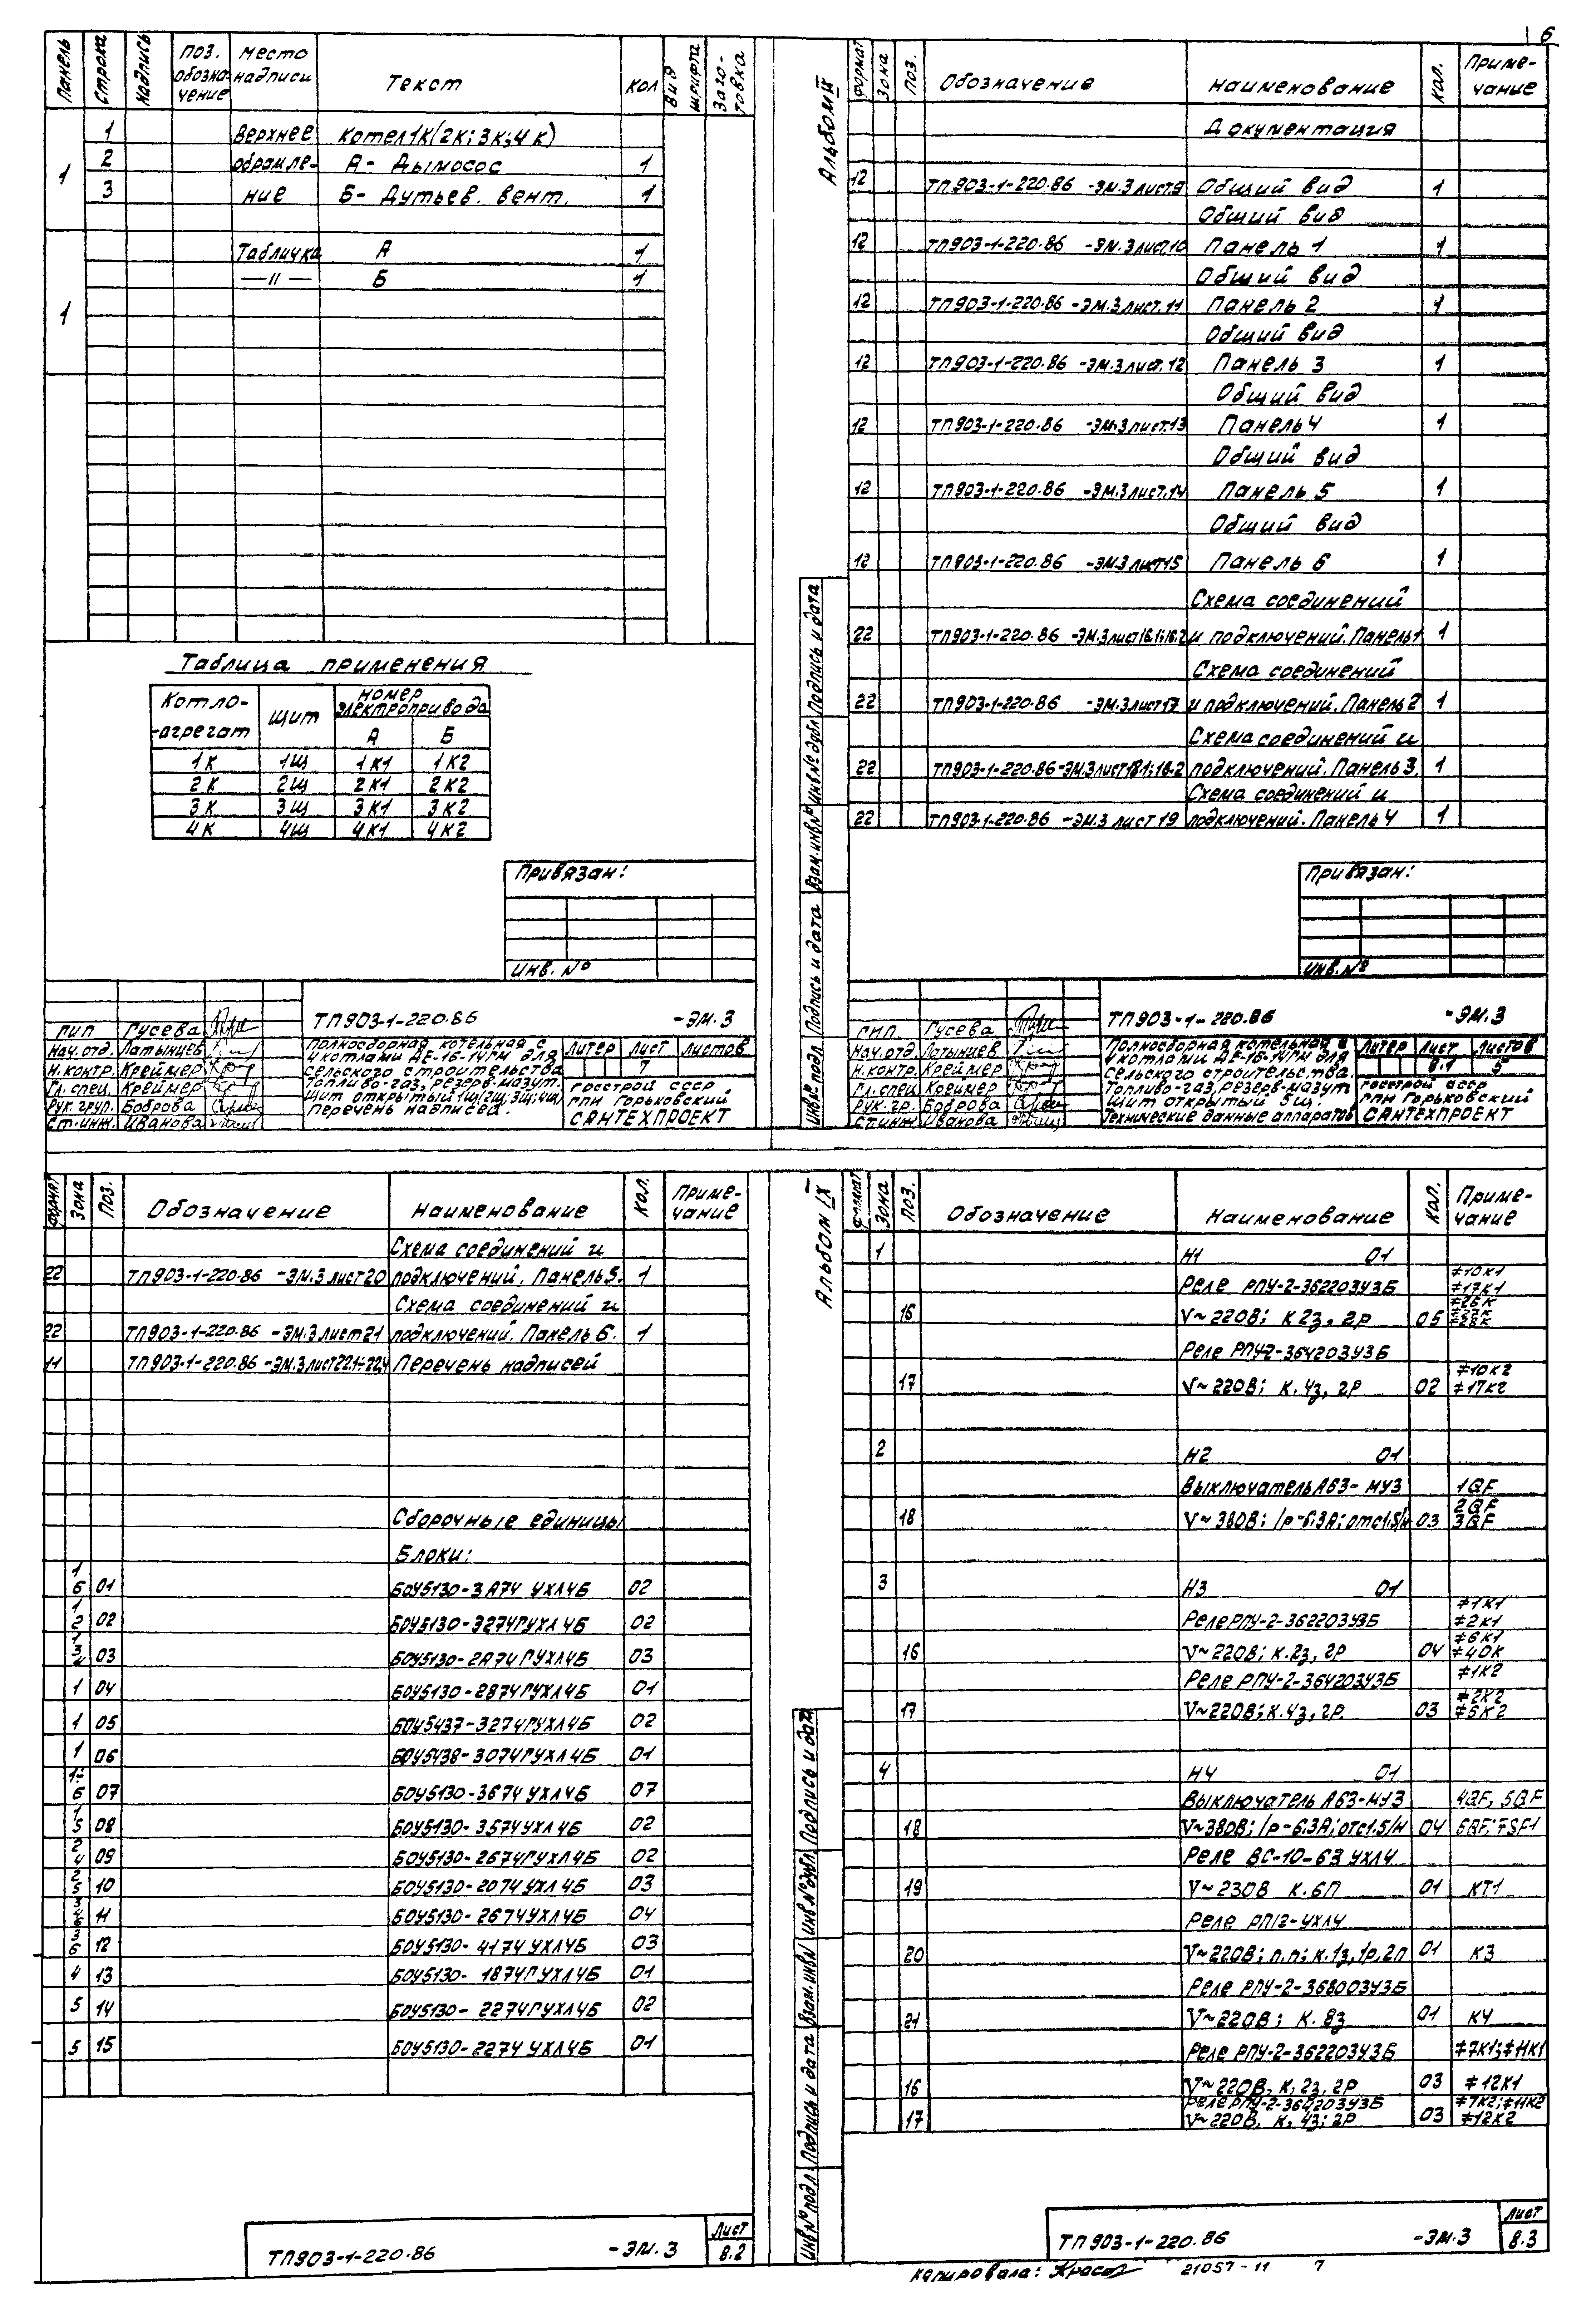 6
Панель Строка Надпись Поз. обозначение Место надписи Текст Кол Вид шрифта Заготовка
1 1 Верхнее Котел 1К (2К; 3К; 4К)
2 обрамле- А- Дымосос 1
3 ние Б- Дутьев. вент. 1
1 Табличка А 1
—"— Б 1
Таблица применения
Котло-агрегат Щит Номер электропривода
А Б
1К 1Щ 1К1 1К2
2К 2Щ 2К1 2К2
3К 3Щ 3К1 3К2
4К 4Щ 4К1 4К2
Привязан:
Инв. №
ТП903-1-220.86 -ЭМ.3
ГИП Гусева
Нач.отд. Латынцев
Н.контр. Креймер
Гл.спец. Креймер
Рук.груп. Боброва
Ст.инж. Иванова
Полносборная котельная с
4 котлами ДЕ-16-14ГМ для
сельского строительства
Топливо-газ, резерв-мазут.
Щит открытый 1Щ(2Щ;3Щ;4Щ)
Перечень надписей.
Литер Лист Листов
7
Госстрой СССР
ГПИ Горьковский
САНТЕХПРОЕКТ
Альбом IX
Формат Зона Поз. Обозначение Наименование Кол. Приме-чание
Документация
12 ТП903-1-220.86 -ЭМ.3 лист9 Общий вид 1
Общий вид
12 ТП903-1-220.86 -ЭМ.3 лист.10 Панель 1 1
Общий вид
12 ТП903-1-220.86 -ЭМ.3 лист.11 Панель 2 1
Общий вид
12 ТП903-1-220.86 -ЭМ.3 лист.12 Панель 3 1
Общий вид
12 ТП903-1-220.86 -ЭМ.3 лист.13 Панель 4 1
Общий вид
12 ТП903-1-220.86 -ЭМ.3 лист.14 Панель 5 1
Общий вид
12 ТП903-1-220.86 -ЭМ.3 лист15 Панель 6 1
Схема соединений
22 ТП903-1-220.86 -ЭМ.3 лист16.1;16.2 и подключений. Панель 1 1
Схема соединений
22 ТП903-1-220.86 -ЭМ.3 лист17 и подключений. Панель 2 1
Схема соединений и
22 ТП903-1-220.86 -ЭМ.3 лист18.1;18.2 подключений. Панель 3. 1
Схема соединений и
22 ТП903-1-220.86 -ЭМ.3 лист 19 подключений. Панель 4 1
Привязан:
Инв. №
Инв.№ подл. Подпись и дата Взам.инв.№ Инв.№ дубл. Подпись и дата
ТП903-1-220.86 -ЭМ.3
ГИП Гусева
Нач.отд. Латынцев
Н.контр. Креймер
Гл.спец. Креймер
Рук.гр. Боброва
Ст.инж. Иванова
Полносборная котельная с
4 котлами ДЕ-16-14ГМ для
сельского строительства.
Топливо-газ, резерв-мазут
Щит открытый 5Щ.
Технические данные аппаратов
Литер Лист Листов
8.1 5
Госстрой СССР
ГПИ Горьковский
САНТЕХПРОЕКТ
Формат Зона Поз. Обозначение Наименование Кол. Приме-чание
Схема соединений и
22 ТП903-1-220.86 -ЭМ.3 лист20 подключений. Панель 5. 1
Схема соединений и
22 ТП903-1-220.86 -ЭМ.3 лист21 подключений. Панель 6. 1
11 ТП903-1-220.86 -ЭМ.3 лист22.1÷22.4 Перечень надписей
Сборочные единицы
Блоки:
1 6 01 БОУ5130-3А74 УХЛ4Б 02
1 2 02 БОУ5130-3274ГУХЛ4Б 02
1 3 4 03 БОУ5130-2А74ГУХЛ4Б 03
1 04 БОУ5130-2874ГУХЛ4Б 01
1 05 БОУ5437-3274ГУХЛ4Б 02
1 06 БОУ5438-3074ГУХЛ4Б 01
1÷6 07 БОУ5130-3674 УХЛ4Б 07
1 5 08 БОУ5130-3574 УХЛ4Б 02
2 4 09 БОУ5130-2674ГУХЛ4Б 02
2 5 10 БОУ5130-2074 УХЛ4Б 03
3 4 6 11 БОУ5130-2674УХЛ4Б 04
3 6 12 БОУ5130-4174 УХЛ4Б 03
4 13 БОУ5130-1874ГУХЛ4Б 01
5 14 БОУ5130-2274ГУХЛ4Б 02
5 15 БОУ5130-2274 УХЛ4Б 01
ТП903-1-220.86 -ЭМ.3
Лист
8.2
Альбом IX
Формат Зона Поз. Обозначение Наименование Кол. Приме-чание
1 Н1 01
Реле РПУ-2-36220343Б ≠10К1 ≠17К1
16 V~220В; К 2з, 2Р 05 ≠26К ≠27К ≠28К
Реле РПУ-2-36420343Б
17 V~220В; К. 4з, 2Р 02 ≠10К2 ≠17К2
2 Н2 01
Выключатель А63-МУ3 1QF
18 V~380В; Iр=6.3А; отс1.5Iн 03 2QF 3QF
3 Н3 01
Реле РПУ-2-362203У3Б ≠1К1 ≠2К1
16 V~220В; К.2з, 2Р 04 ≠6К1 ≠40К
Реле РПУ-2-364203У3Б ≠1К2
17 V~220В; К.4з, 2Р. 03 ≠2К2 ≠6К2
4 Н4 01
Выключатель А63-МУ3 4QF, 5QF
18 V~380В; Iр=6.3А; отс1.5Iн 04 6QF; 7SF1
Реле ВС-10-63 УХЛ4
19 V~230В К.6П 01 КТ1
Реле РП12-УХЛ4
20 V~220В; п.п; К.1з, 1р, 2п 01 К3
Реле РПУ-2-368003У3Б
21 V~220В; К. 8з 01 К4
Реле РПУ-2-362203У3Б ≠7К1; ≠11К1
16 V~220В, К, 2з, 2Р 03 ≠12К1
Реле РПУ-2-364203У3Б ≠7К2; ≠11К2
17 V~220В, К, 4з; 2Р 03 ≠12К2
Инв.№ подл. Подпись и дата Взам.инв.№ Инв.№ дубл. Подпись и дата
ТП903-1-220.86 -ЭМ.3
Лист
8.3
Копировала: 21057-11 7